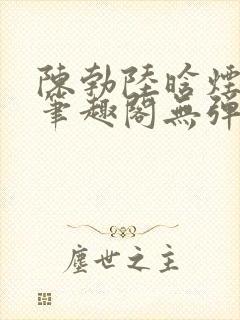 陳勃陸晗煙
筆趣閣無彈
塵世之主